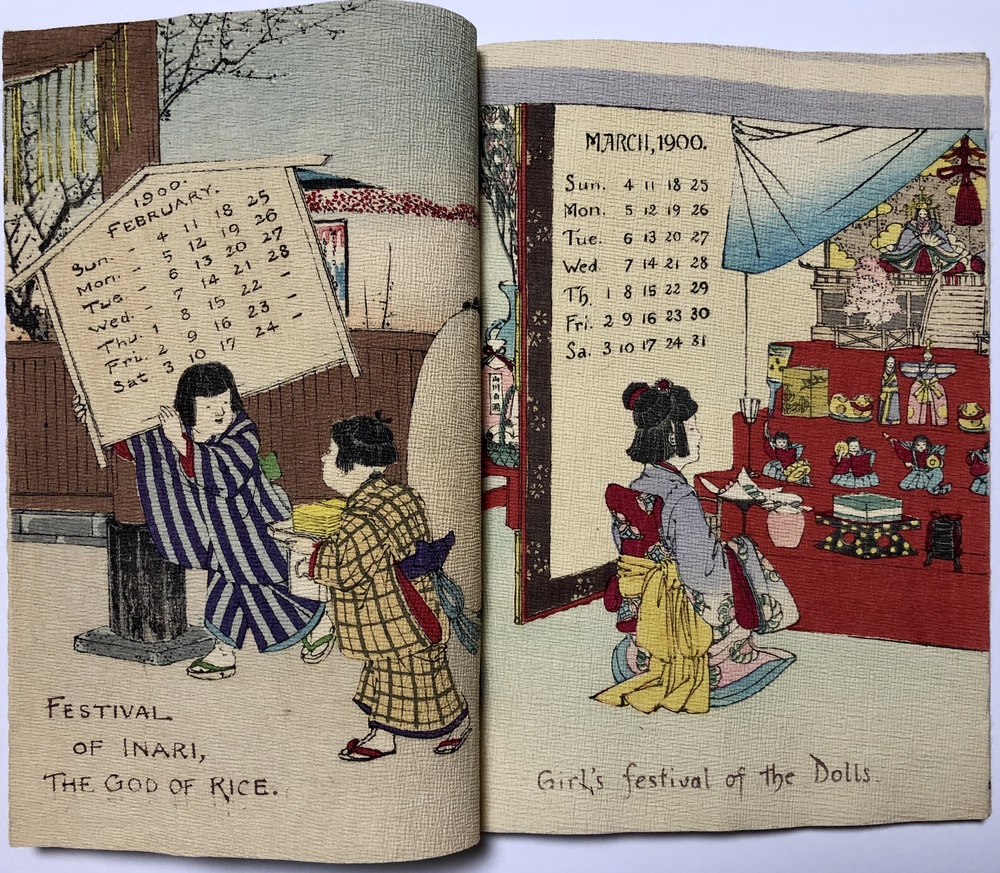 1900.
FEBRUARY.
Sun. - 4 11 18 25
Mon. - 5 12 19 26
Tue - 6 13 20 27
Wed. - 7 14 21 28
Thu. 1 8 15 22 -
Fri. 2 9 16 23 -
Sat 3 10 17 24 -
FESTIVAL
OF INARI,
THE GOD OF RICE.
MARCH, 1900.
Sun. 4 11 18 25
Mon. 5 12 19 26
Tue. 6 13 20 27
Wed. 7 14 21 28
Th. 1 8 15 22 29
Fri. 2 9 16 23 30
Sa. 3 10 17 24 31
山川白酒
Girl's festival of the Dolls.